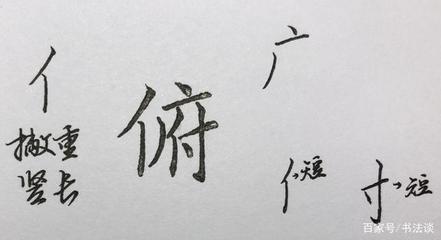 亻
撇重
竖长
俯
广
亻短
寸短
百家号/书法谈